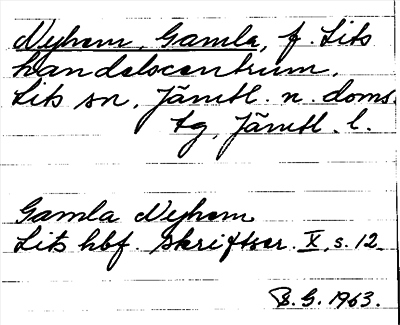 Nyhem, Gamla, f. Lits
handelscentrum,
Lits sn, Jämtl. n. doms.
tg, Jämtl. l.
Gamla Nyhem
Lits hbf. skriftser. X, s. 12.
B. G. 1963.